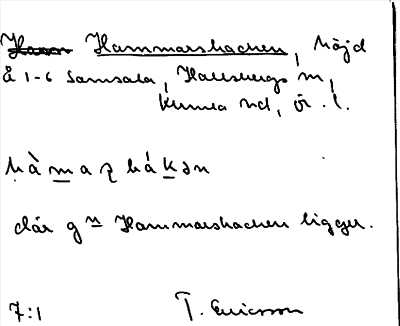 Hammarshacken, höjd
å 1-6 Samsala, Hallsbergs sn,
Kumla hd, ör. l.
hà m a ʐ há k ə n
där gn Hammarshacken ligger.
7:1 T. Ericsson